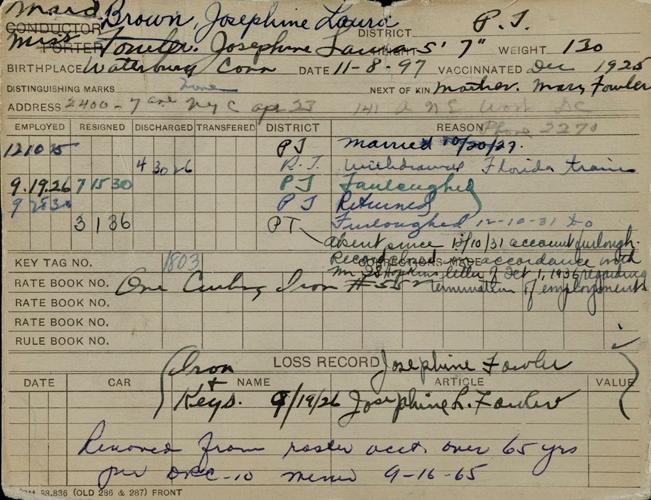 Maid Brown, Josephine Laura
CONDUCTOR DISTRICT P.T.
Miss PORTER Fowler, Josephine Laura HEIGHT 5' 7" WEIGHT 130
BIRTHPLACE Waterbury Conn DATE 11-8-97 VACCINATED Dec 1925
DISTINGUISHING MARKS None NEXT OF KIN Mother. Mary Fowler
ADDRESS 2400-7 ave NYC apt 23 141 NE DC
Phone 2270
EMPLOYED RESIGNED DISCHARGED TRANSFERRED DISTRICT REASON
12 10 25 PT Married 10/20/27.
4 30 26 P.T. Withdrawal Florida trains
9.19.26 7 15 30 PT Furloughed
9 25 30 PT Returned
3 1 36 PT Furloughed 12-10-31 to
absent since 12/10/31 account furlough.
Record closed in accordance with
KEY TAG NO. 1803 Mr Hopkins letter of Oct 1, 1936 regarding
RATE BOOK NO. One Curling Iron #552 termination of employments
RATE BOOK NO.
RATE BOOK NO.
RULE BOOK NO.
LOSS RECORD Josephine Fowler
Iron
DATE CAR & NAME ARTICLE VALUE
Keys. 9/19/26 Josephine L. Fowler
Removed from roster acct. over 65 yrs
per memo 9-16-65
(OLD 286 & 287) FRONT